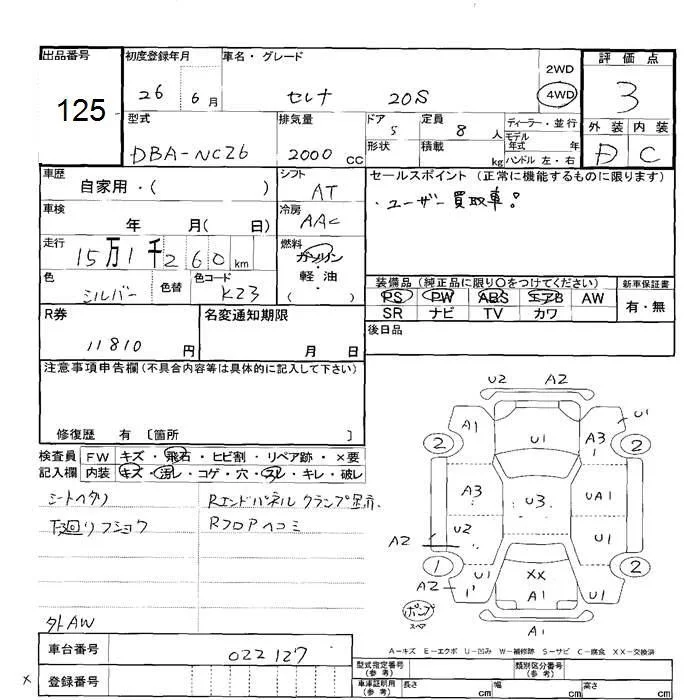 出品番号 初度登録年月 車名・グレード 評価点
125 26 6月 セレナ 20S 2WD 4WD 3
型式 排気量 ドア 5 定員 8人 ディーラー・並行 外装 内装
DBA-NC26 2000 CC 形状 積載 kg モデル年式 年 ハンドル 左・右 D C
車歴 自家用・( ) シフト AT セールスポイント (正常に機能するものに限ります)
車検 年 月( 日) 冷房 AAC ・ユーザー買取車!
走行 15万1千260km 燃料 ガソリン・軽油 ( )
色 シルバー 色替 色コード K23 装備品 (純正品に限り○をつけてください) 新車保証書
PS PW ABS エアB AW 有・無
SR ナビ TV カワ
R券 11810円 名変通知期限 月 日 後日品
注意事項申告欄(不具合内容等は具体的に記入して下さい)
修復歴 有 〔箇所 〕
検査員記入欄 FW キズ・飛石・ヒビ割・リペア跡・×要
内装 キズ・汚レ・コゲ・穴・スレ・キレ・破レ
シートヘタリ RエンドパネルクランプA
下廻リフショウ Rフロアヘコミ
外AW
U2 A2
A1 U1 A3 U1
2 2
A3 U3 UA1
U2 U1
A2
1 2
A2 U1 XX U1
1' A1
ポンプ
スペア
A1
A-キズ E-エクボ U-凹み W-補修跡 S-サビ C-腐食 XX-交換済
車台番号 022127
型式指定番号(参考) 類別区分番号(参考)
× 登録番号
車庫証明用(参考) 長さ cm 幅 cm 高さ cm